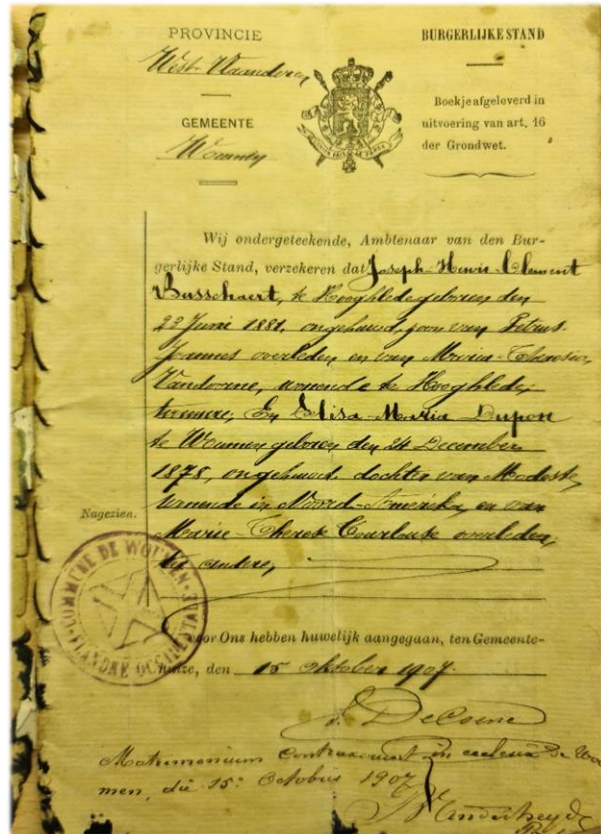 PROVINCIE
West-Vlaanderen
GEMEENTE
Woumen
BURGERLIJKE STAND
Boekje afgeleverd in
uitvoering van art. 16
der Grondwet.
Wij ondergeteekende, Ambtenaar van den Bur-
gerlijke Stand, verzekeren dat Joseph-Henri-Clement
Busschaert, te Hooghlede geboren den
23 Juni 1881, ongehuwd, zoon van Petrus-
Joannes overleden en van Maria-Theresia
Vandorne, wonende te Hooghlede,
ter eenre; En Elisa-Maria Dupon
te Woumen geboren den 24 December
1878, ongehuwd, dochter van Modest,
wonende in Noord-Amerika, en van
Marie-Therese Courlouse overleden,
ter andere,
Nagezien.
COMMUNE DE WOUMEN
FLANDRE OCCIDENTALE
voor Ons hebben huwelijk aangegaan, ten Gemeente-
huize, den 15 Oktober 1907.
DeCoene
Matrimonium contraxerunt in ecclesia de Wou
men, die 15a Octobris 1907